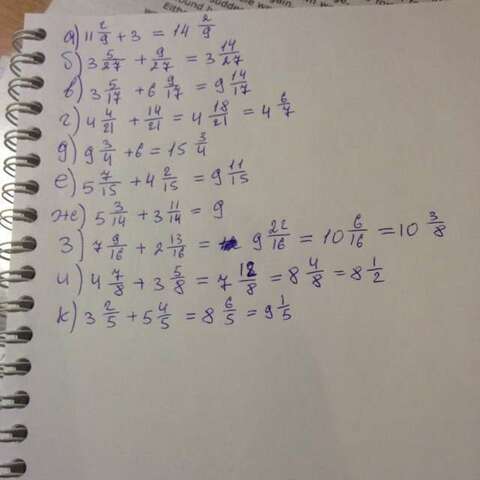 а) 11 2/9 + 3 = 14 2/9
б) 3 5/27 + 9/27 = 3 14/27
в) 3 5/17 + 6 9/17 = 9 14/17
г) 4 4/21 + 14/21 = 4 18/21 = 4 6/7
д) 9 3/4 + 6 = 15 3/4
е) 5 7/15 + 4 2/15 = 9 11/15
ж) 5 3/14 + 3 11/14 = 9
з) 7 9/16 + 2 13/16 = 9 22/16 = 10 6/16 = 10 3/8
и) 4 7/8 + 3 5/8 = 7 12/8 = 8 4/8 = 8 1/2
к) 3 2/5 + 5 4/5 = 8 6/5 = 9 1/5